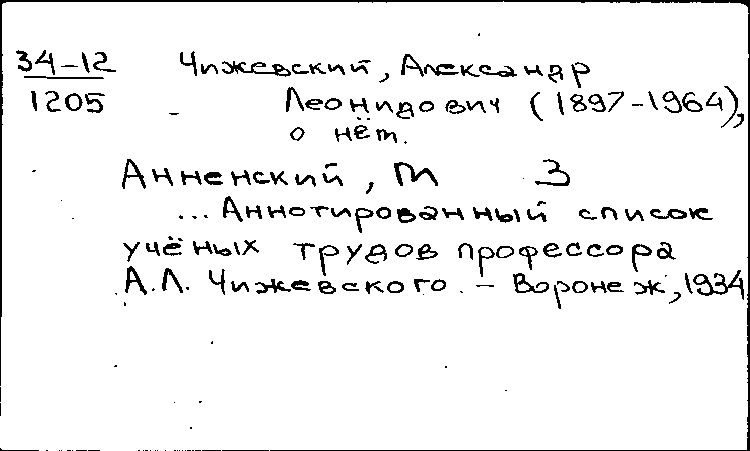 34-12 Чижевский, Александр
1205 Леонидович (1897-1964),
о нём.
Анненский, М З
... Аннотированный список
учёных трудов профессора
А.Л. Чижевского. - Воронеж, 1934